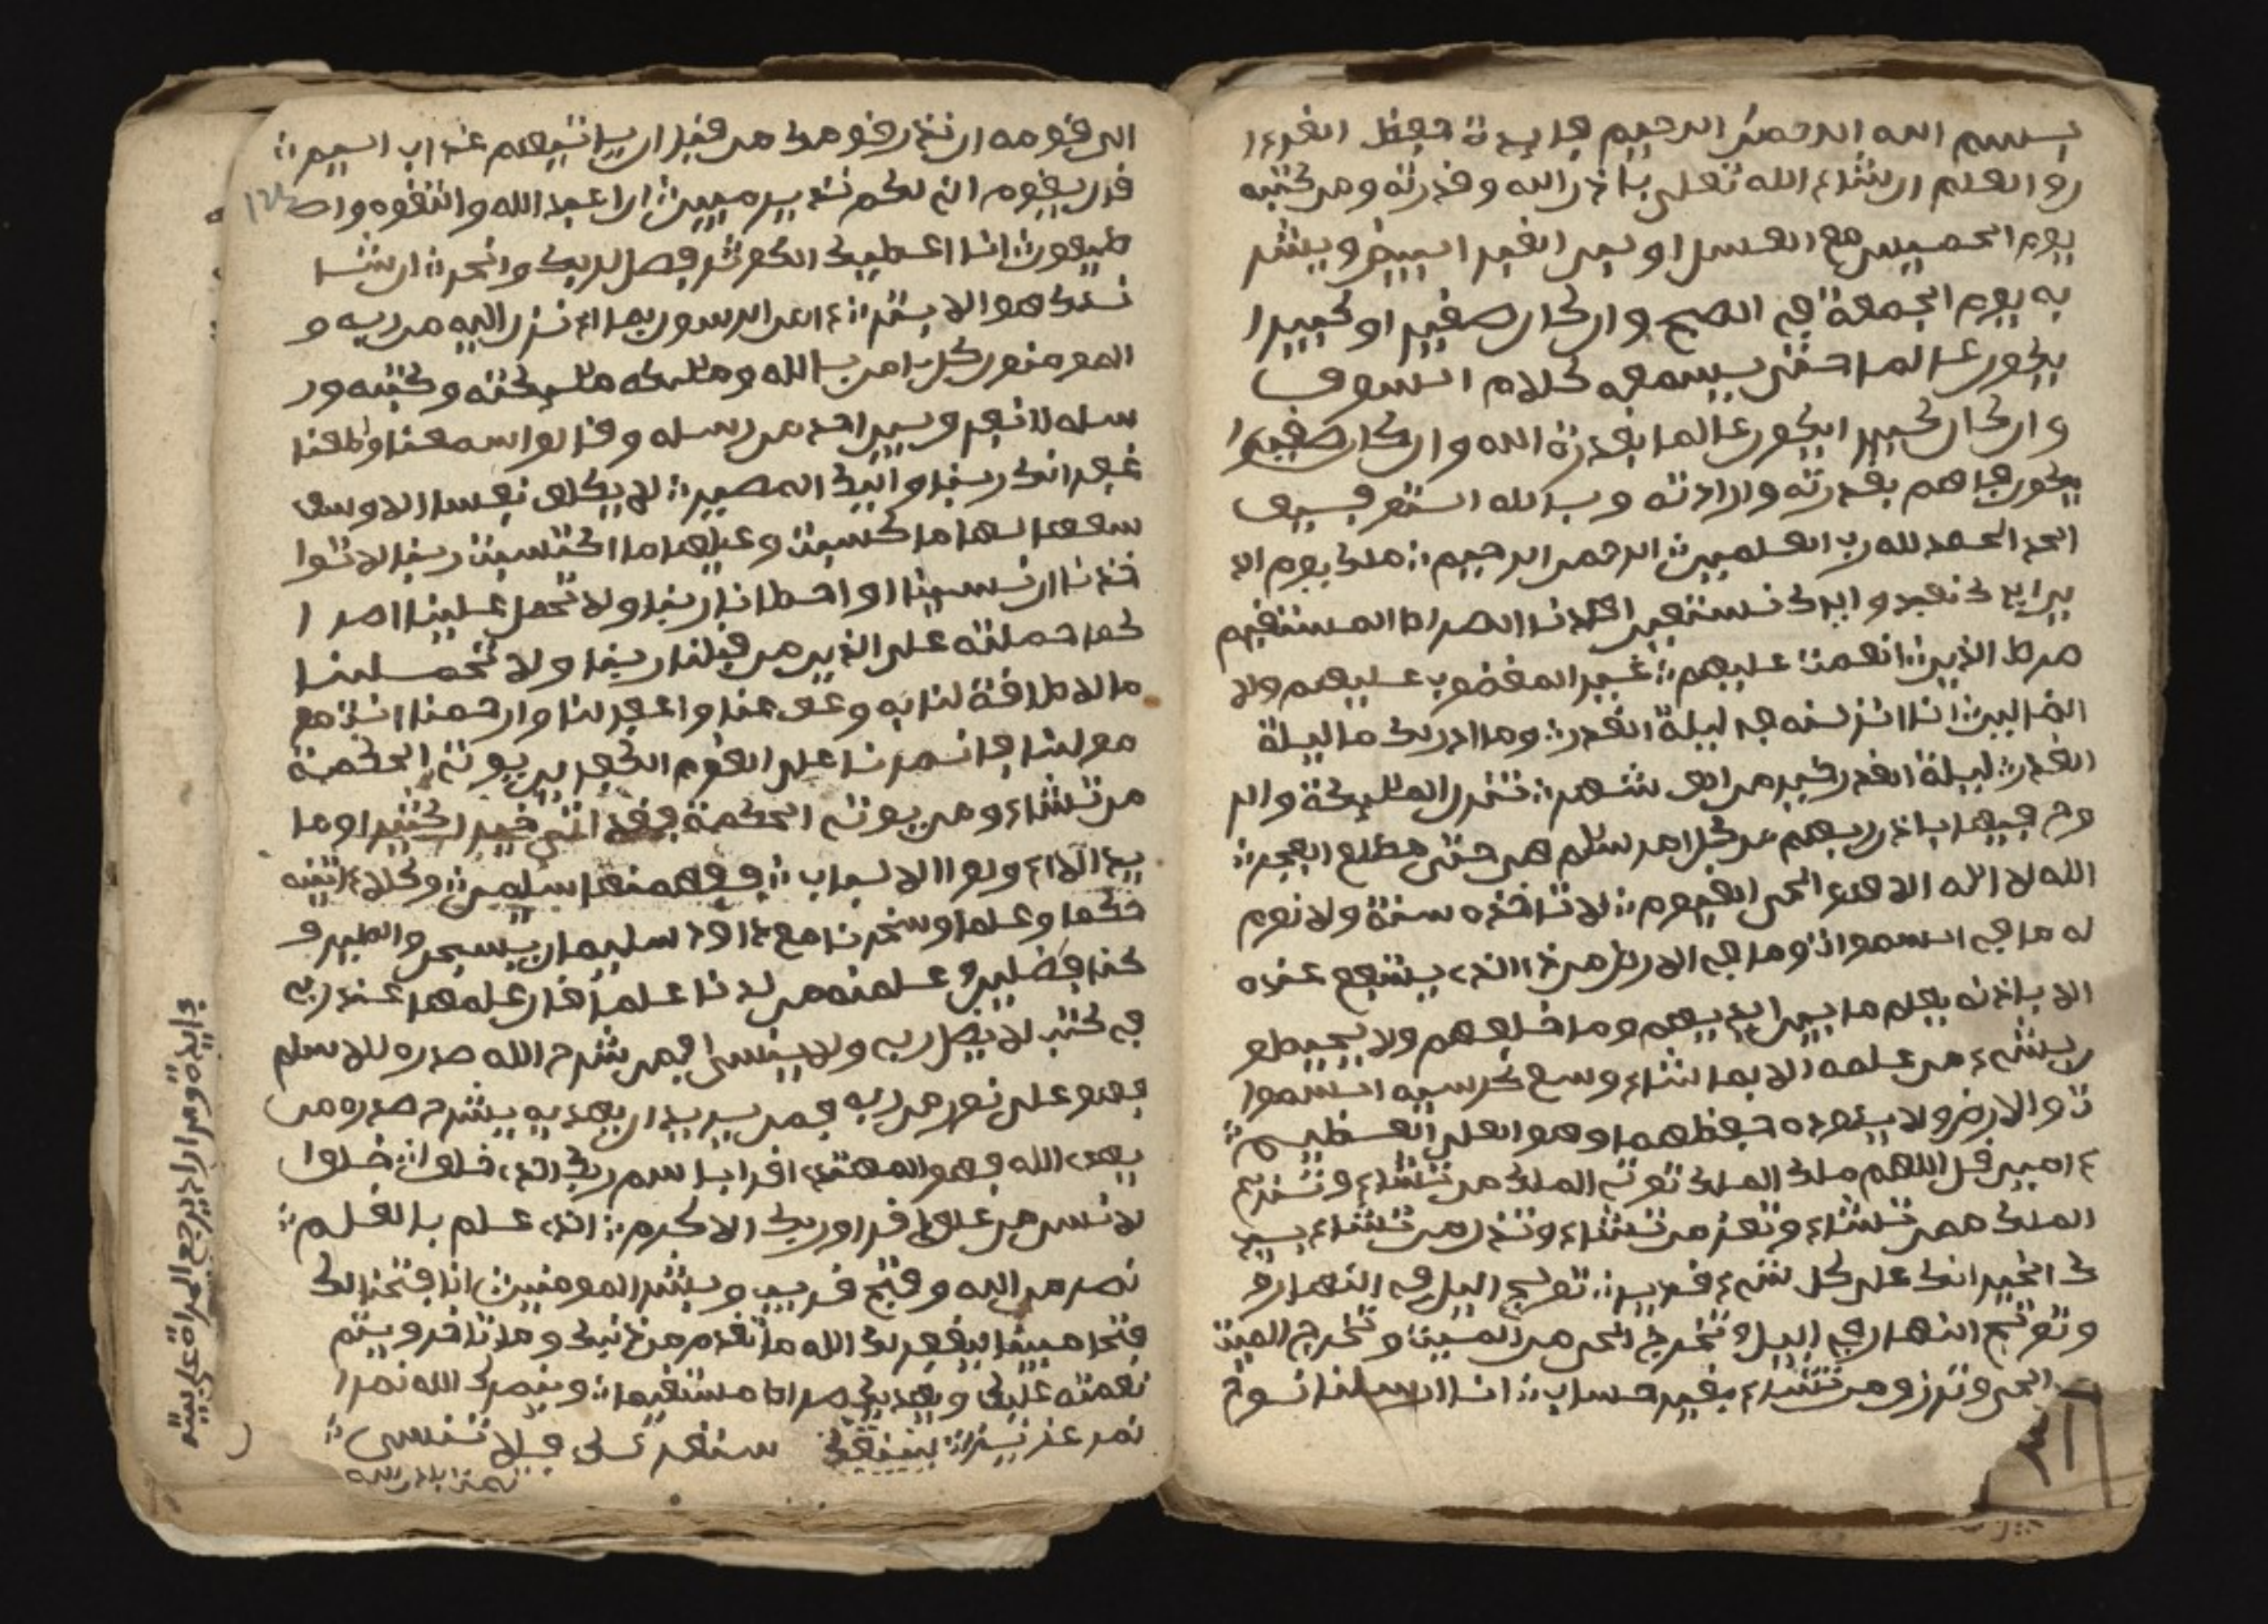 بسم الله الرحمن الرحيم فايدة حفظ القرءا
ن والعلم ان شاء الله تعلى باذن الله وقدرته ومن كتبه
يوم الخميس مع العسل او لبن البقر ابييض ويشر
به يوم الجمعة في الصبح وان كان صغير او كبيرا
يكون عالما حتى يسمعه كلام السوق
وان كان كبير ايكون عالما بقدرة الله وان كان صغيرا
يكون فاهم بقدرته وارادته وبالله التوفيق
الحد الحمد لله رب العلمين الرحمن الرحيم ملك يوم الد
ين اياك نعبد واياك نستعين اهدنا الصراط المستقيم
صرط الذين انعمت عليهم غير المغضوب عليهم ولا
الضالين انا انزلنه في ليلة القدر وما ادريك ما ليلة
القدر ليلة القدر خير من الف شهر تنزل المليكة والر
وح فيها باذن ربهم من كل امر سلم هي حتى مطلع الفجر
الله لا اله الا هو الحي القيوم لا تاخذه سنة ولا نوم
له ما في السموات وما في الارض من ذا الذي يشفع عنده
الا باذنه يعلم ما بين ايديهم وما خلفهم ولا يحيطو
ن بشيء من علمه الا بما شاء وسع كرسيه السموا
ت والارض ولا يئوده حفظهما وهو العلي العظيم
ءامين قل اللهم ملك الملك توتي الملك من تشاء وتنزع
الملك ممن تشاء وتعز من تشاء وتذل من تشاء بيد
ك الخير انك على كل شيء قدير تولج اليل في النهار و
وتولج النهار في اليل وتخرج الحي من الميت وتخرج الميت
الحي وترزق من تشاء بغير حساب انا ارسلنا نوح
الى قومه ان نذر قومك من قبل ان ياتيهم عذاب اليم
قال يقوم اني لكم نذير مبين ان اعبد الله واتقوه واط
طيعون انا اعطيك الكوثر فصل لربك وانحر ان شا
نئك هو الابتر ءامن الرسول بما انزل اليه من ربه و
المومنون كل ءامن بالله ومليكه مليكته وكتبه ور
سله لا نفرق بين احد من رسله وقالوا سمعنا واطعنا
غفرانك ربنا واليك المصير لا يكلف نفسا الا وسعـ
سعها لها ما كسبت وعليها ما اكتسبت ربنا لا توا
خذنا ان نسينا او اخطانا ربنا ولا تحمل علينا اصرا
كما حملته على الذين من قبلنا ربنا ولا تحملنا
ما لا طاقة لنا به وعف عنا واغفر لنا وارحمنا انت مو
مولنا فانصرنا على القوم الكفرين يوتي الحكمة
من تشاء ومن يوتي الحكمة فقد اتي خيرا كثيرا وما
يذ الا اولوا الالباب ففهمنها سليمن وكلا ءاتينه
حكما وعلما وسخرنا مع داود سليمان يسبحن والطير و
كنا فعلين وعلمنه من لدنا علما قال علمها عند ربي
في كتب لا يضل ربي ولا ينسى افمن شرح الله صدره للاسلم
فهو على نور من ربه فمن يريد ان يهديه يشرح صدره من
يهد الله فهو المهتدي اقرا باسم ربك الذي خلق خلق ا
لانسن من علق اقرا وربك الاكرم الذي علم بالقلم
نصر من الله وفتح قريب وبشر المومنين انا فتحنا لك
فتحا مبينا ليغفر لك الله ما تقدم من ذنبك وما تاخر ويتم
نعمته عليك ويهديك صراطا مستقيما وينصرك الله نصرا
نصر عزيزا سنقرئك فلا تنسى
تمت باذن الله
فايدة ومن اراد يرجع المراة على بيته